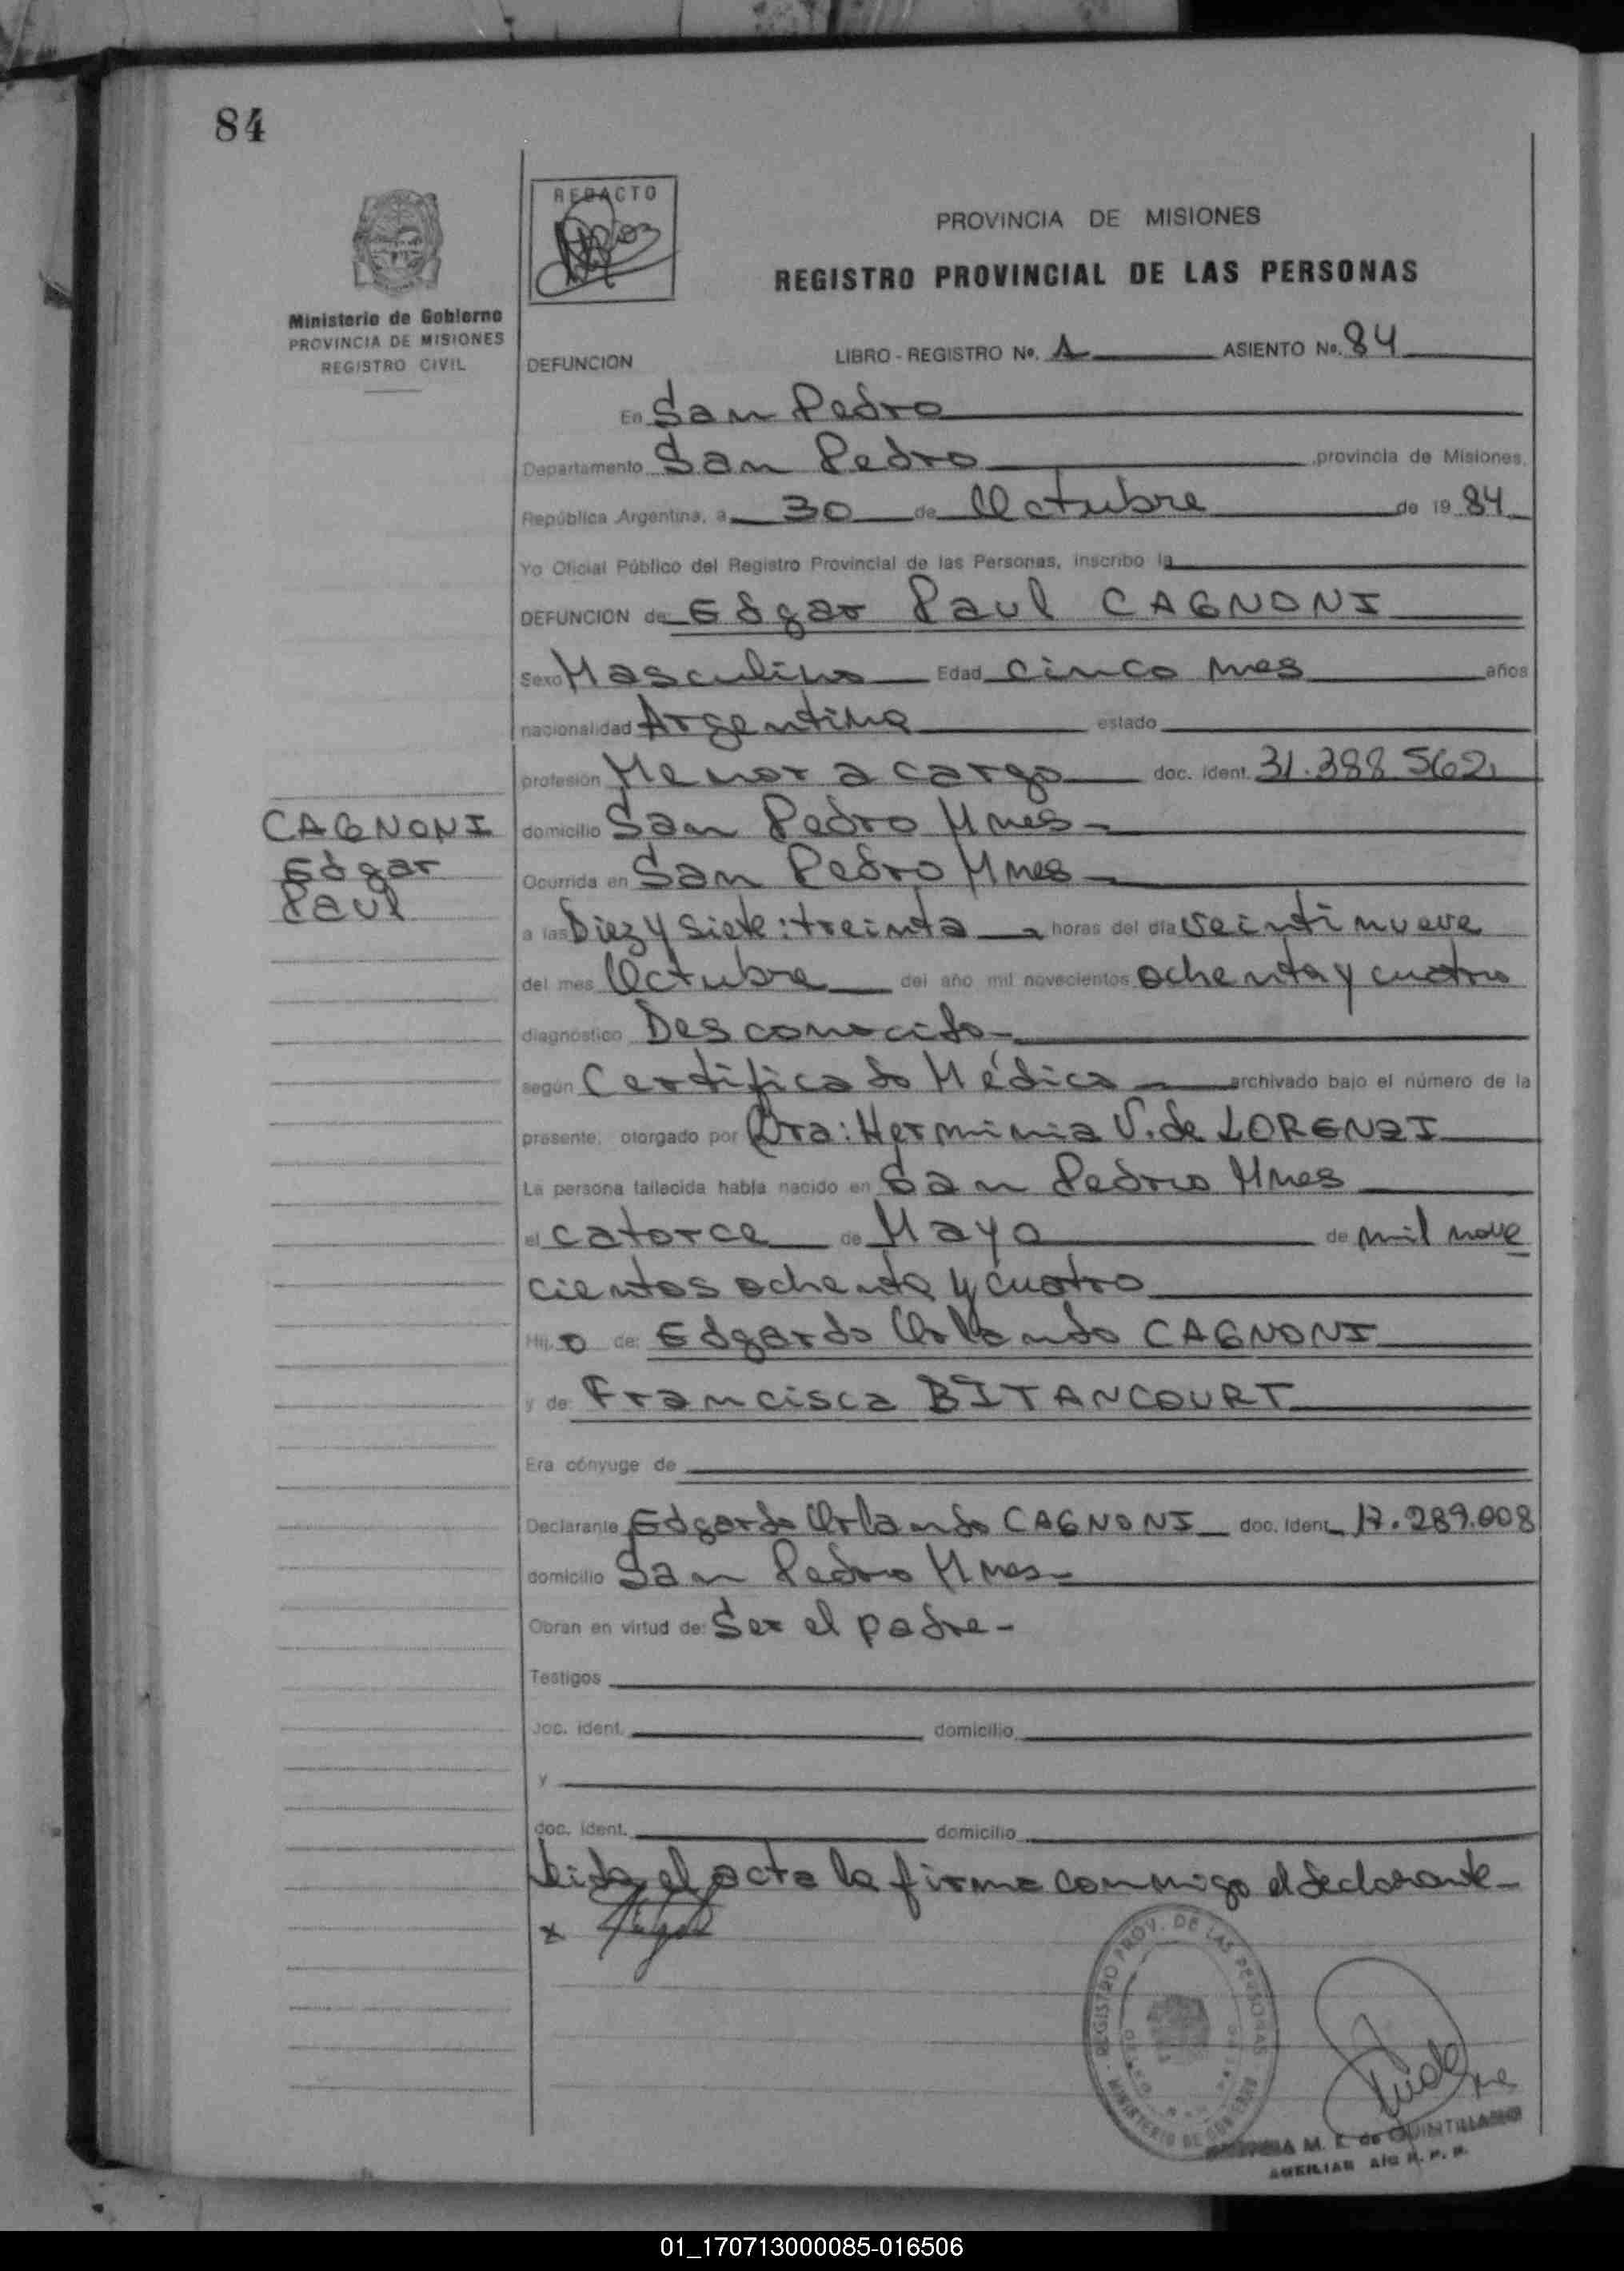 84
REDACTO
PROVINCIA DE MISIONES
REGISTRO PROVINCIAL DE LAS PERSONAS
Ministerio de Gobierno
PROVINCIA DE MISIONES
REGISTRO CIVIL
DEFUNCION LIBRO - REGISTRO No. 1 ASIENTO No. 84
En San Pedro
Departamento San Pedro provincia de Misiones,
República Argentina, a 30 de Octubre de 19 84
Yo Oficial Público del Registro Provincial de las Personas, inscribo la
DEFUNCION de Edgar Paul CAGNONI
Sexo Masculino Edad cinco mes años
nacionalidad Argentina estado
profesión Menor a cargo doc. ident. 31.388 562
CAGNONI
Edgar
Paul
domicilio San Pedro Mnes
Ocurrida en San Pedro Mnes
a las Diez y siete: treinta horas del día veintinueve
del mes Octubre del año mil novecientos ochenta y cuatro
diagnóstico Desconocido
según Certificado Médico archivado bajo el número de la
presente, otorgado por Dra: Herminia V. de LORENZI
La persona fallecida había nacido en San Pedro Mnes
el catorce de Mayo de mil nove
cientos ochenta y cuatro
Hijo de: Edgardo Orlando CAGNONI
y de Francisca BITANCOURT
Era cónyuge de
Declarante Edgardo Orlando CAGNONI doc. ident. 17.289.008
domicilio San Pedro Mnes
Obran en virtud de: Ser el padre-
Testigos
doc. ident. domicilio
y
doc. ident. domicilio
Leida el acta la firma conmigo el declarante-
x
REGISTRO PROV. DE LAS PERSONAS
MINISTERIO DE GOBIERNO
M. E. de QUINTILLANO
AUXILIAR A/C R. P. P.
01_170713000085-016506